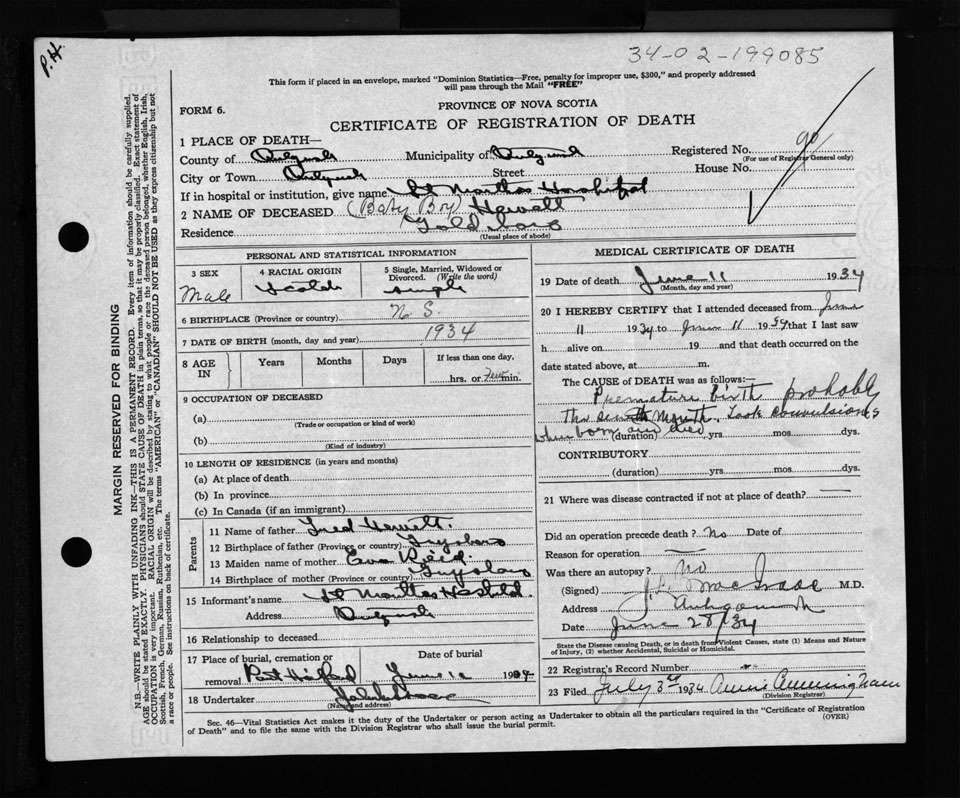 34-02-199085
P.H.
This form if placed in an envelope, marked "Dominion Statistics—Free, penalty for improper use, $300," and properly addressed
will pass through the Mail "FREE"
FORM 6.
PROVINCE OF NOVA SCOTIA
CERTIFICATE OF REGISTRATION OF DEATH
1 PLACE OF DEATH—
County of Municipality of Registered No. 90
(For use of Registrar General only)
City or Town Street House No.
If in hospital or institution, give name St Marthas Hospital
2 NAME OF DECEASED (Baby Boy)
Residence
(Usual place of abode)
PERSONAL AND STATISTICAL INFORMATION
3 SEX Male
4 RACIAL ORIGIN Scotch
5 Single, Married, Widowed or Divorced. (Write the word) single
6 BIRTHPLACE (Province or country) N. S.
7 DATE OF BIRTH (month, day and year) 1934
8 AGE IN Years Months Days If less than one day,
hrs. or few min.
9 OCCUPATION OF DECEASED
(a)
(Trade or occupation or kind of work)
(b)
(Kind of industry)
10 LENGTH OF RESIDENCE (in years and months)
(a) At place of death
(b) In province
(c) In Canada (if an immigrant)
Parents
11 Name of father Fred
12 Birthplace of father (Province or country)
13 Maiden name of mother Eva
14 Birthplace of mother (Province or country)
15 Informant's name St Marthas Hospital.
Address
16 Relationship to deceased
17 Place of burial, cremation or removal Date of burial
Port June 1934
18 Undertaker
(Name and address)
MEDICAL CERTIFICATE OF DEATH
19 Date of death June 11 1934
(Month, day and year)
20 I HEREBY CERTIFY that I attended deceased from June
11 1934 to June 11 1934 that I last saw
h alive on 19 and that death occurred on the
date stated above, at m.
The CAUSE of DEATH was as follows:—
Premature birth probably
Month. Took convulsions
when born died
(duration) yrs mos dys.
CONTRIBUTORY
(duration) yrs mos dys.
21 Where was disease contracted if not at place of death?
Did an operation precede death? No Date of
Reason for operation
Was there an autopsy? no
(Signed) MacIsaac M.D.
Address Antigonish
Date June 28/34
State the Disease causing Death, or in death from Violent Causes, state (1) Means and Nature
of Injury, (2) whether Accidental, Suicidal or Homicidal.
22 Registrar's Record Number
23 Filed July 3rd 1934 Annie Cunningham
(Division Registrar)
Sec. 46—Vital Statistics Act makes it the duty of the Undertaker or person acting as Undertaker to obtain all the particulars required in the "Certificate of Registration
of Death" and to file the same with the Division Registrar who shall issue the burial permit.
(OVER)
MARGIN RESERVED FOR BINDING
N.B.—WRITE PLAINLY WITH UNFADING INK—THIS IS A PERMANENT RECORD. Every item of information should be carefully supplied.
AGE should be stated EXACTLY. PHYSICIANS should STATE CAUSE OF DEATH in plain terms, so that it may be properly classified. Exact statement of
OCCUPATION is very important. RACIAL ORIGIN will be described by stating to what people or race the deceased person belonged, whether English, Irish,
Scottish, French, German, Russian, Ruthenian, etc. The terms "AMERICAN" or "CANADIAN" SHOULD NOT BE USED as they express citizenship but not
a race or people. See instructions on back of certificate.